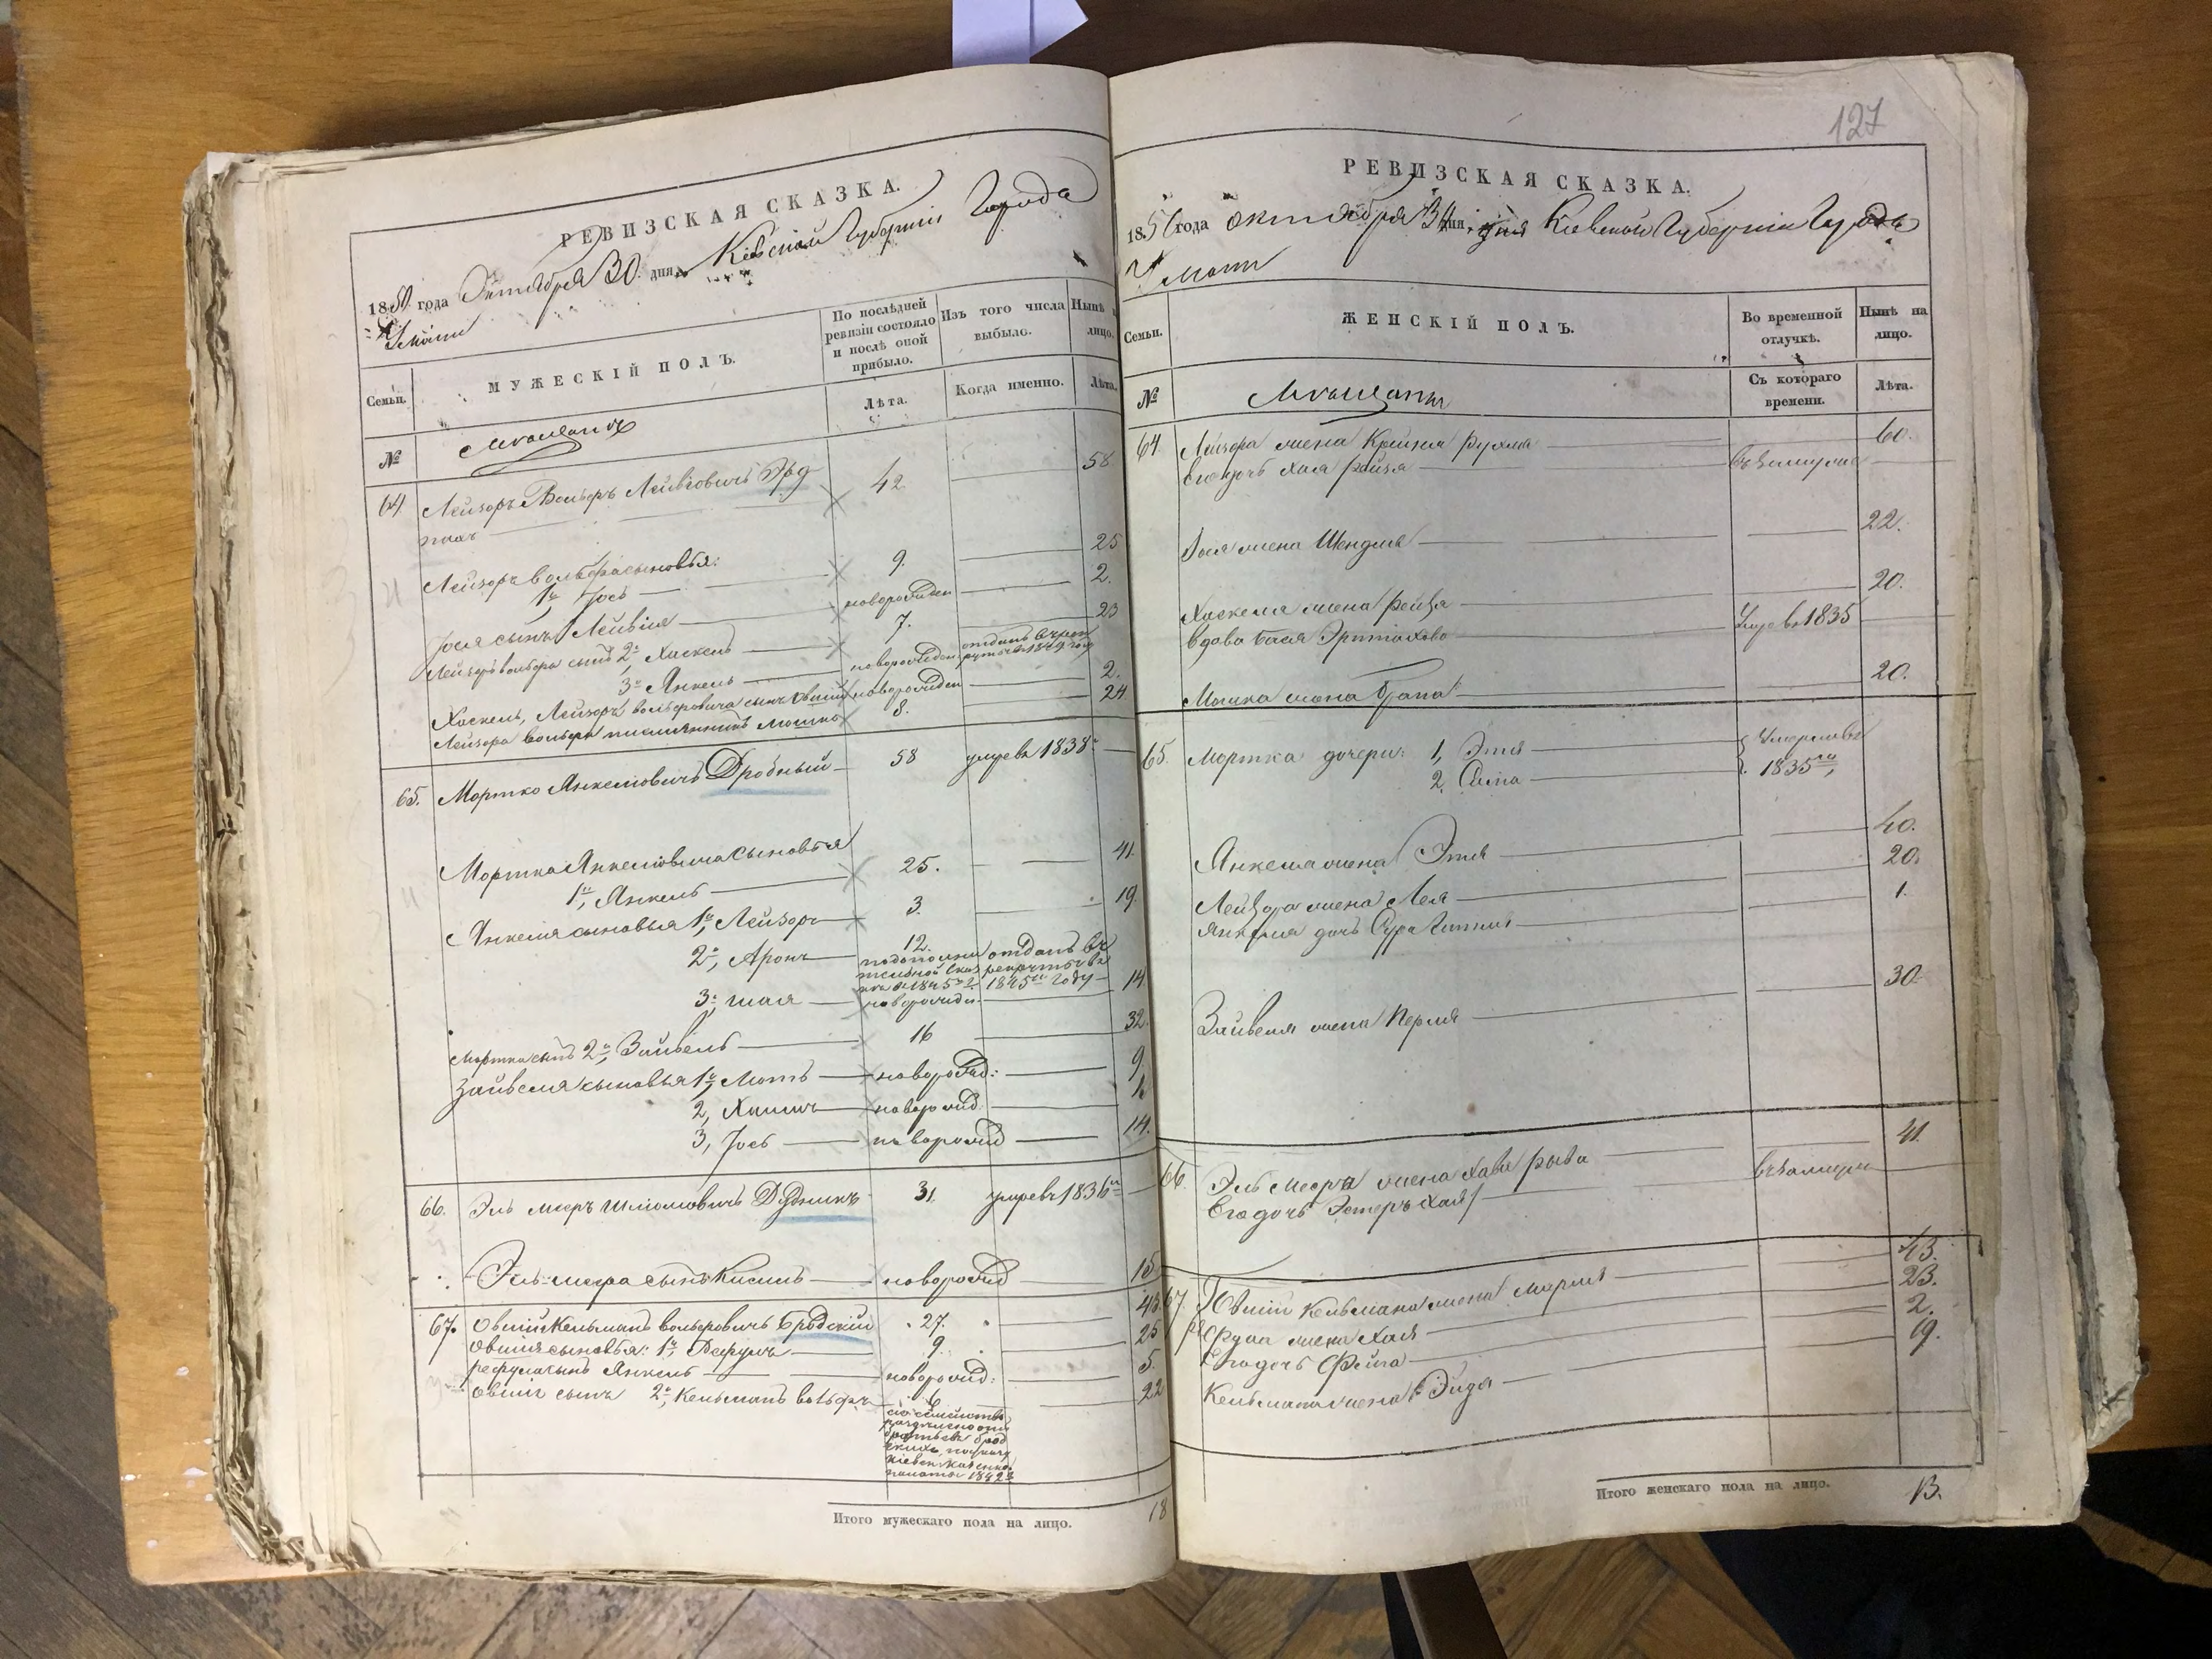 РЕВИЗСКАЯ СКАЗКА.
1850 года Октября 30 дня, Кіевской Губерніи Города
Умани
Семьи.
МУЖЕСКІЙ ПОЛЪ.
По послѣдней ревизіи состояло и послѣ оной прибыло.
Изъ того числа выбыло.
Нынѣ на лицо.
№
Мѣщанъ
Лѣта.
Когда именно.
Лѣта.
64 Лейзоръ Вольфъ Лейвіовичъ 42 58
Лейзоръ Вольфа сыновья:
1й, Іось 9. 25
Іося сынъ Лейвіа новорожден 2.
Лейзоръ Вольфа сынъ 2й, Хаскель 7. 23
3й Янкель новорожден отданъ въ рекруты въ 1849 году
Хаскель, Лейзоръ Вольфовича сынъ новорожден 2.
Лейзора Вольфа племянникъ Мошко 8. 24
65. Мортко Янкелювичъ Дробный 58 умре въ 1838
Мортка Янкелювича сыновья
1й, Янкель 25. 41
Янкеля сыновья 1й, Лейзоръ 3. 19.
2й, Аронъ 12. по дополнительной сказке 1845 отданъ въ рекруты въ 1845 году
3й, Шая новорожден 14
Мортка сынъ 2й, Зайвель 16 32.
Зайвеля сыновья 1й, Моть новорожд: 9.
2, новорожд
3, Іось новорожд 14.
66. Эль Меер Шліомовичъ Дудникъ 31. умре въ 1836
Эль Меера сынъ Кисиль новорожд 15
67. Овшій Кельманъ Вольфовичъ Бродскій 27. 43
Овшія сыновья: 1й, Рефулъ 9. 25
Рефула сынъ Янкель новорожд: 5.
Овшія сынъ 2й, Кельманъ Вольфъ 6 22
Итого мужескаго пола на лицо. 18
127
РЕВИЗСКАЯ СКАЗКА.
1850 года октября 30 дня Кіевской Губерніи Города
Умани
Семьи.
ЖЕНСКІЙ ПОЛЪ.
Во временной отлучкѣ.
Нынѣ на лицо.
№
Мѣщанъ
Съ котораго времени.
Лѣта.
64 Лейзора жена Крейна Рухля 60.
Его дочь Хая Рейзя въ замуже
Іося жена Шендля 22.
Хаскеля жена Рейзя 20.
Вдова Бася умре въ 1835
Мошка жена 20.
65. Мортка дочери: 1, Этя умерли въ
2, 1835 го
Янкеля жена Этя 40.
Лейзора жена Лея 20.
Янкеля дочь Сура 1.
Зайвеля жена Перля 30
66. Эль Меера жена Хава Рыва 41.
Его дочь Эстеръ Хая въ замуже
67. Овшій Кельмана жена 43.
Рефула жена Хая 23.
Его дочь Фейга 2.
Кельмана жена Эйдя 19.
Итого женскаго пола на лицо. 13.